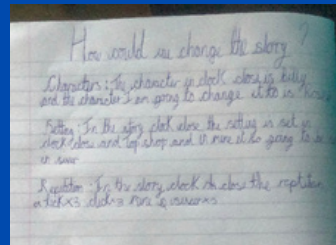 How would we change the story?
Characters: The character in clock close is billy
and the character I am going to change it to is
Setting: In the story clock close the setting is set in
clock close and Top shop and in mine it is going to be
in
Repetition: In the story clock close the
tick x3 click x3 mine is x3